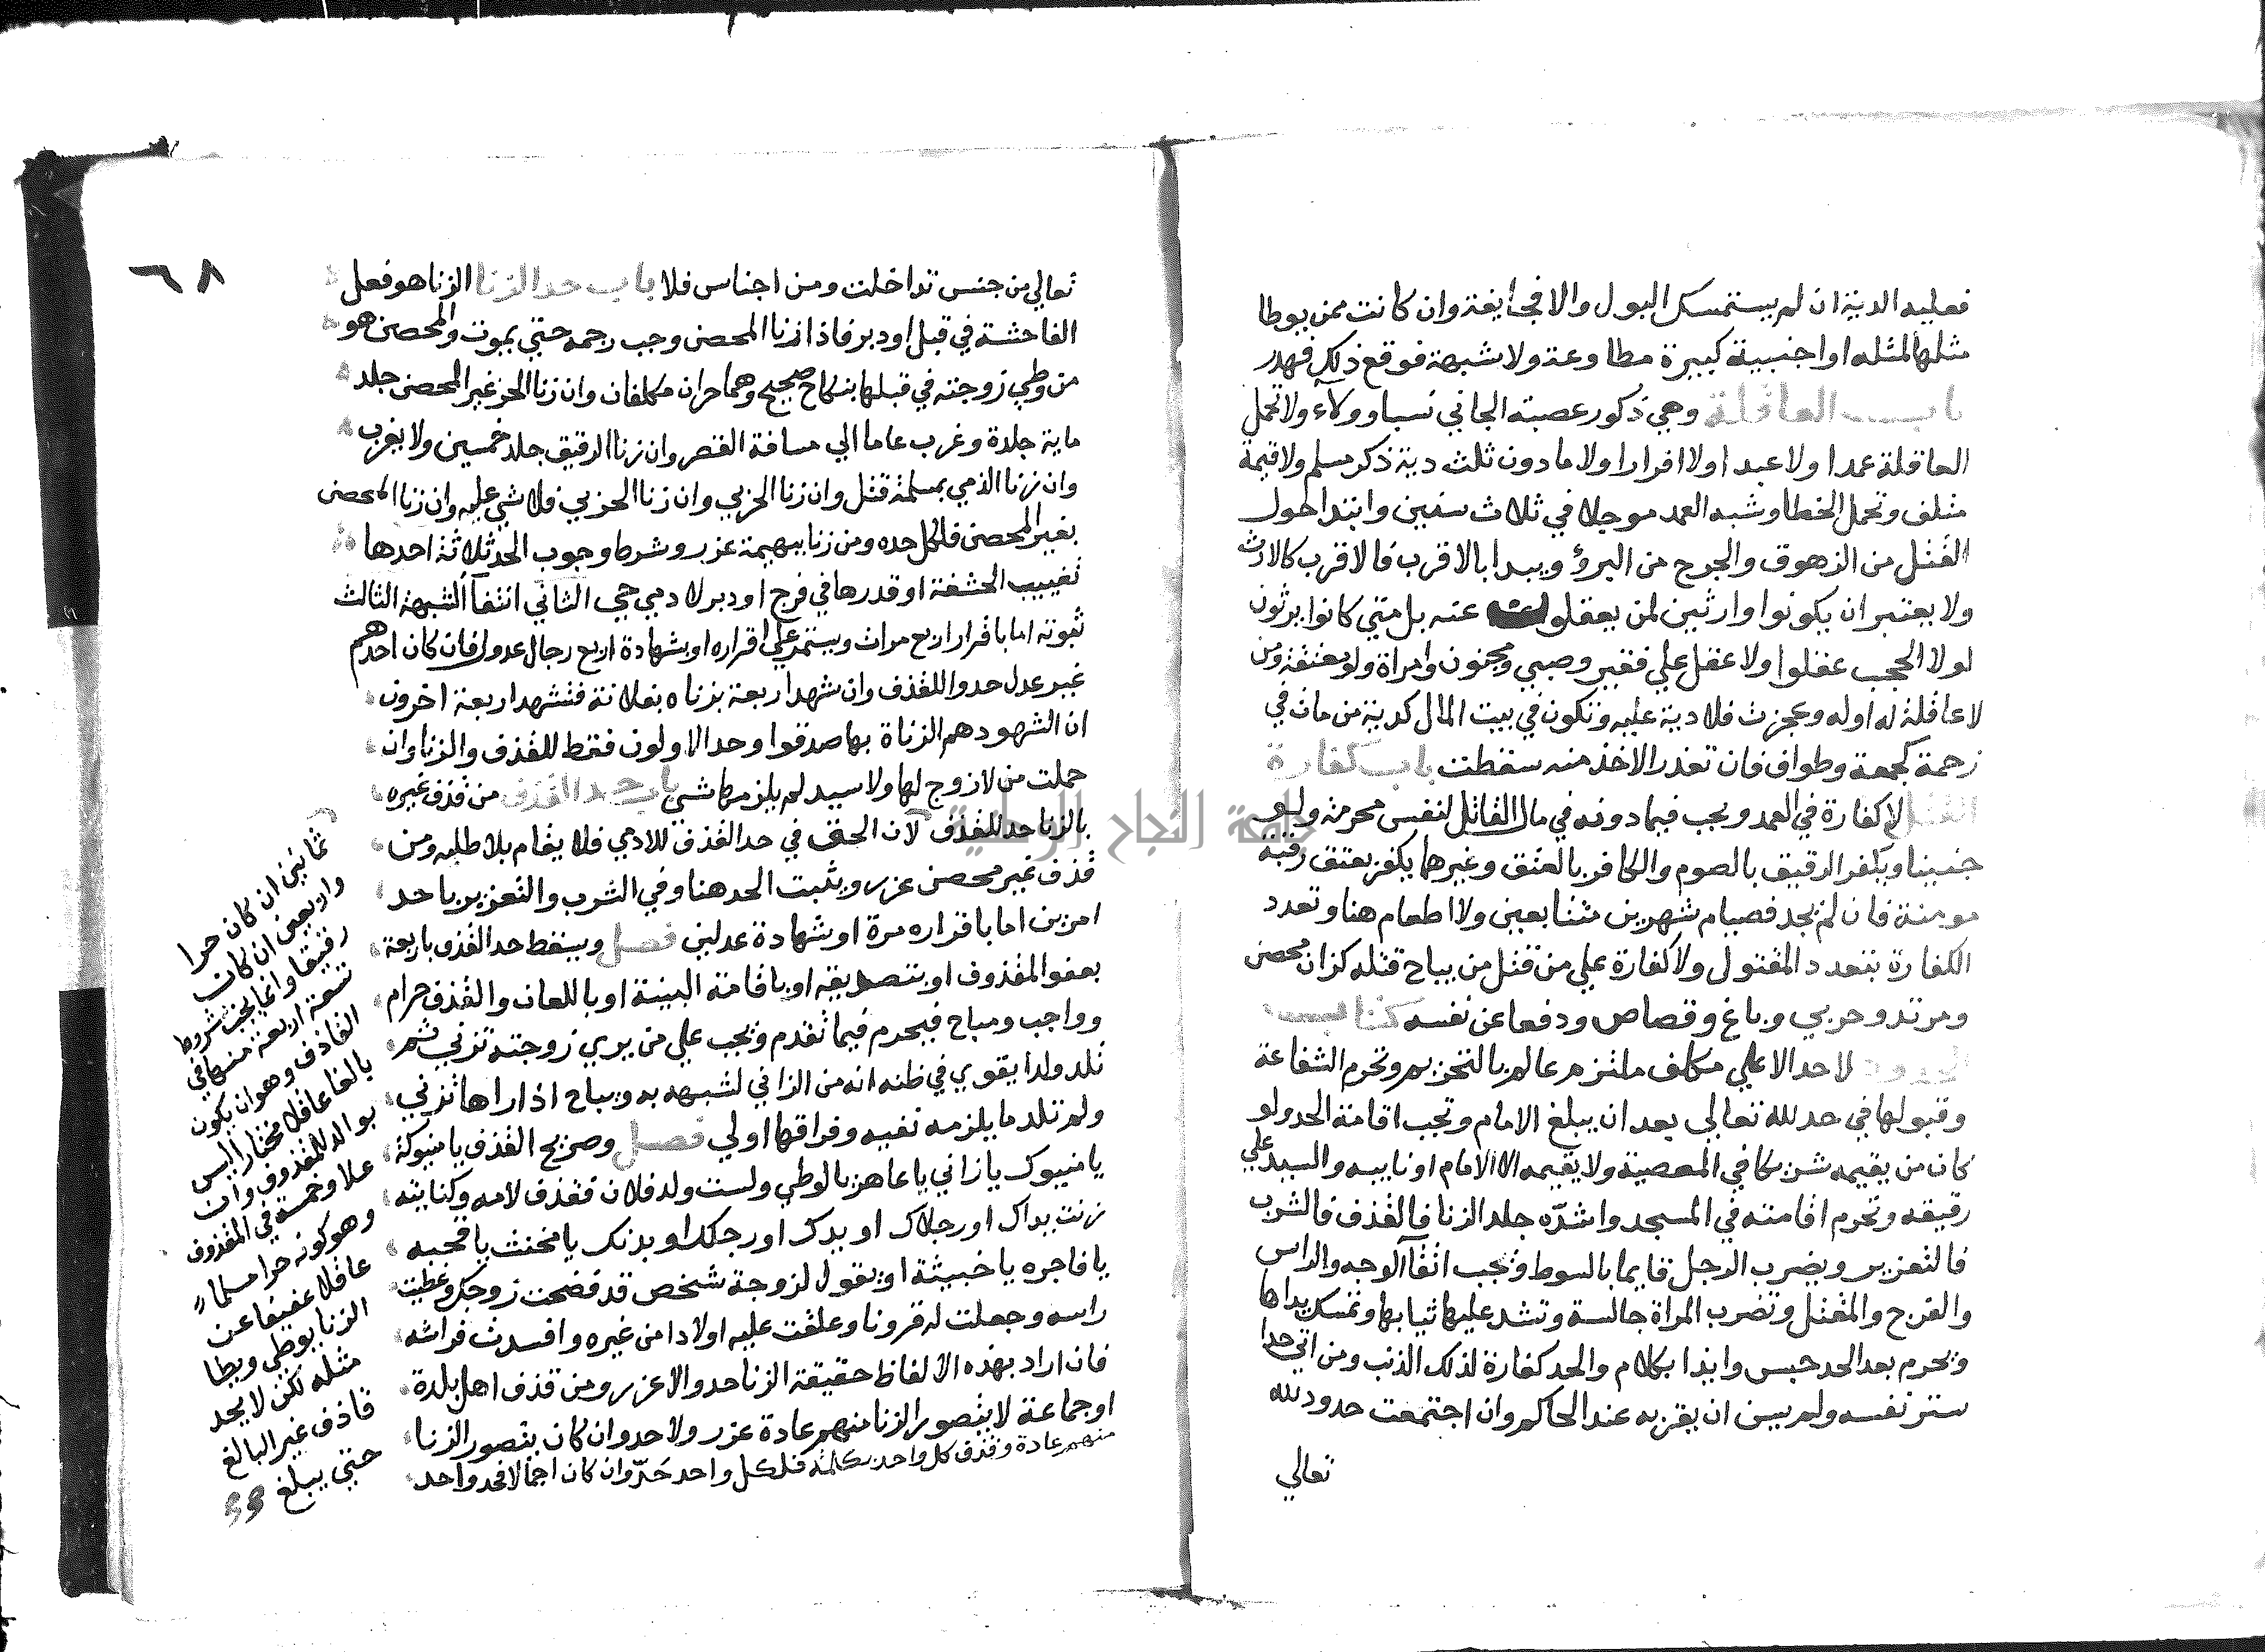 فعليه الدية ان لم يستمسك البول والا فجايفة وان كانت ممن يوطا
مثلها لمثله او اجنبية كبيرة مطاوعة ولا شبهة فوقع ذلك فهدر
باب العاقلة وهي ذكور عصبته الجاني نسبا وولاء ولا تحمل
العاقلة عمدا ولا عبدا ولا اقرارا ولا مادون ثلث دية ذكر مسلم ولا قيمة
متلف وتحمل الخطا وشبه العمد موجلا في ثلاث سنين وابتدا حول
القتل من الزهوق والجرح من البرؤ ويبدا بالاقرب فالاقرب كالارث
ولا يعتبر ان يكونوا وارثين لمن يعقلون عنه بل متي كانوا يرثون
لولا الحجب عقلوا ولا عقل علي فقير وصبي ومجنون وامراة ولو معتقة ومن
لا عاقلة له اوله وعجزت فلا دية عليه وتكون في بيت المال كدية من مات في
زحمة كجمعة وطواف فان تعذر الاخذ منه سقطت باب كفارة
القتل لا كفارة في العمد ويجب فيما دونه في مال القاتل لنفس محرمة ولو
جنينا ويكفر الرقيق بالصوم والكافر بالعتق وغيرهما يكفر بعتق رقبة
مومنة فان لم يجد فصيام شهرين متتابعين ولا اطعام هنا وتعدد
الكفارة بتعدد المقتول ولا كفارة علي من قتل من يباح قتله كزان محصن
ومرتد وحربي وباغ وقصاص ودفعا عن نفسه كتاب
الحدود لا حد الا علي مكلف ملتزم عالم بالتحريم وتحرم الشفاعة
وقبولها في حد لله تعالي بعد ان يبلغ الامام وتجب اقامة الحد ولو
كان من يقيمه شريكا في المعصية ولا يقيمه الا الامام او نايبه والسيد علي
رقيقه وتحرم اقامته في المسجد واشده جلد الزنا فالقذف فالشرب
فالتعزير ويضرب الرجل قايما بالسوط ويجب اتقآ الوجه والراس
والفرج والمقتل وتضرب المراة جالسة وتشد عليها ثيابها وتمسك يداها
ويحرم بعد الحد حبس وايذا بكلام والحد كفارة لذلك الذنب ومن اتي حدا
ستر نفسه ولم يسن ان يقر به عند الحاكم وان اجتمعت حدود لله
تعالي
٦٨
تعالي من جنس تداخلت ومن اجناس فلا باب حد الزنا الزنا هو فعل
الفاحشة في قبل او دبر فاذا زنا المحصن وجب رجمه حتي يموت والمحصن هو
من وطي زوجته في قبلها بنكاح صحيح وهما حران مكلفان وان زنا الحر غير المحصن جلد
ماية جلدة وغرب عاما الي مسافة القصر وان زنا الرقيق جلد خمسين ولا يغرب
وان زنا الذمي بمسلمة قتل وان زنا الحربي وان زنا الحربي فلا شي عليه وان زنا المحصن
بغير المحصن فلكل حده ومن زنا ببهيمة عزر وشرط وجوب الحد ثلاثة احدها
تغييب الحشفة او قدرها في فرج او دبر لادمي حي الثاني انتفآ الشبهة الثالث
ثبوته اما باقرار اربع مرات ويستمر علي اقراره او بشهادة اربع رجال عدول فان كان احدهم
غير عدل حدوا للقذف وان شهد اربعة بزناه بفلانة فشهد اربعة اخرون
ان الشهود هم الزناة بها صدقوا وحد الاولون فقط للقذف والزنا وان
حملت من لا زوج لها ولا سيد لم يلزمها شي باب حد القذف من قذف غيره
بالزنا حد للقذف لان الحق في حد القذف للادمي فلا يقام بلا طلبه ومن
قذف غير محصن عزر ويثبت الحد هنا وفي الشرب والتعزير باحد
امرين اما باقراره مرة او شهادة عدلين فصل ويسقط حد القذف باربعة
بعفو المقذوف او بتصديقه او باقامة البينة او باللعان والقذف حرام
وواجب ومباح فيحرم فيما تقدم ويجب علي من يري زوجته تزني ثم
تلد ولدا يقوي في ظنه انه من الزاني لشبهه به ويباح اذا راها تزني
ولم تلد ما يلزمه نفيه وفراقها اولي فصل وصريح القذف يا منيوكة
يا منيوك يا زاني يا عاهر يا لوطي ولست ولد فلان فقذف لامه وكنايته
زنت يداك او رجلاك او يدك او رجلك او بدنك يا مخنث يا قحبه
يا فاجره يا خبيثة او يقول لزوجة شخص قد فضحت زوجك وغطيت
راسه وجعلت له قرونا وعلقت عليه اولادا من غيره وافسدت فراشه
فان اراد بهذه الالفاظ حقيقة الزنا حد والا عزر ومن قذف اهل بلدة
او جماعة لا يتصور الزنا منهم عادة عزر ولا حد وان كان يتصور الزنا
منهم عادة وقذف كل واحد بكلمة فلكل واحد حَدّ وان كان اجمالا فحد واحد
ثمانين ان كان حرا
واربعين ان كان
رقيقا وانما يجب بشروط
تسعة اربعة منها في
القاذف وهو ان يكون
بالغا عاقلا مختارا ليس
بوالد للمقذوف وان
علا وخمسة في المقذوف
وهو كونه حرا مسلما
عاقلا عفيفا عن
الزنا يوطي ويطا
مثله لكن لا يحد
قاذف غير البالغ
حتي يبلغ
جامعة النجاح الوطنية